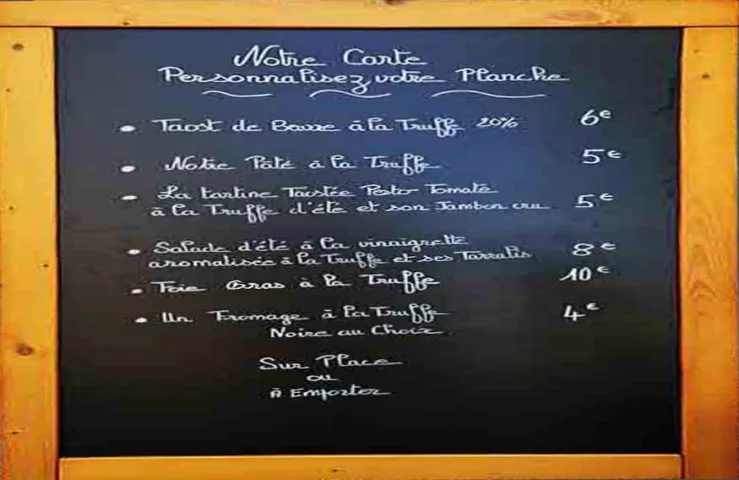 Notre Carte
Personnalisez votre Planche
• Taost de Beurre à la Truffe 20% 6€
• Notre Pâté à la Truffe 5€
• La tartine Taostée Pesto Tomate
à la Truffe d'été et son Jambon cru 5€
• Salade d'été à la vinaigrette 8€
aromatisée à la Truffe et ses Tarralis
• Foie Gras à la Truffe 10€
• Un Fromage à la Truffe 4€
Noire au Choix
Sur Place
ou
À Emporter